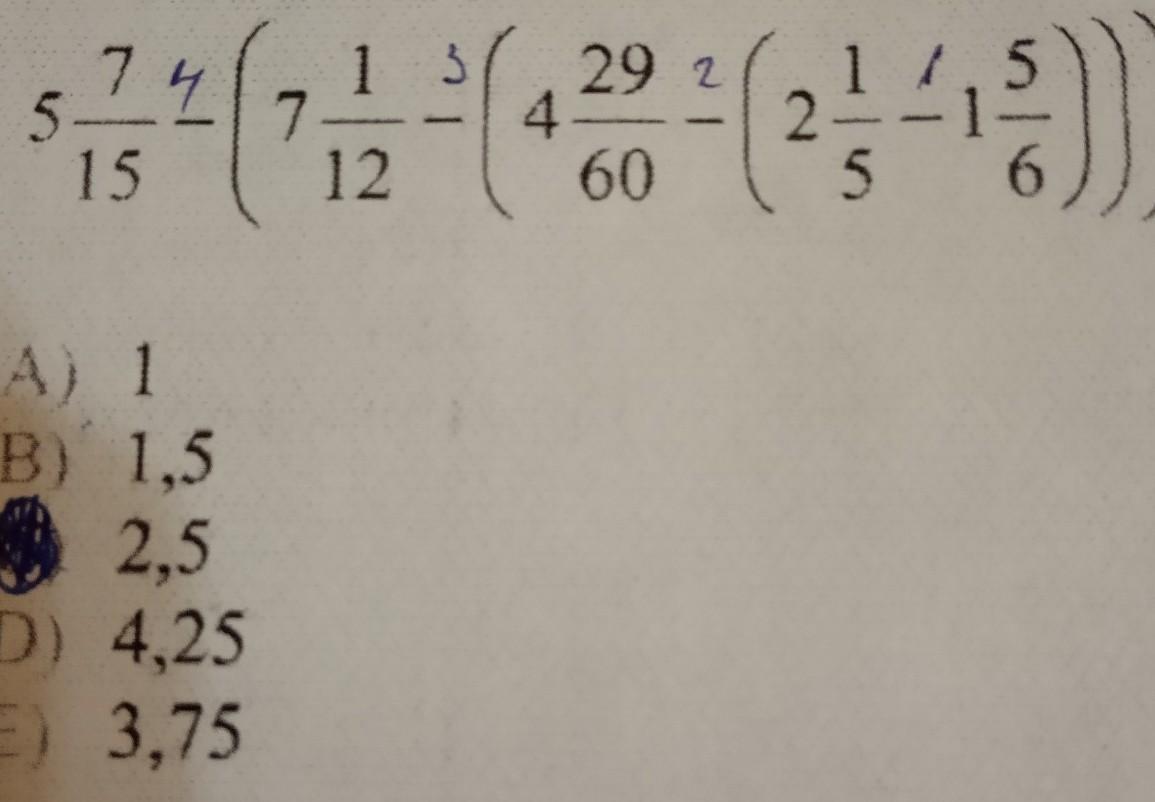 5 7/15 4 − (7 1/12 3 − (4 29/60 2 − (2 1/5 1 − 1 5/6)))
A) 1
B) 1,5
2,5
D) 4,25
E) 3,75